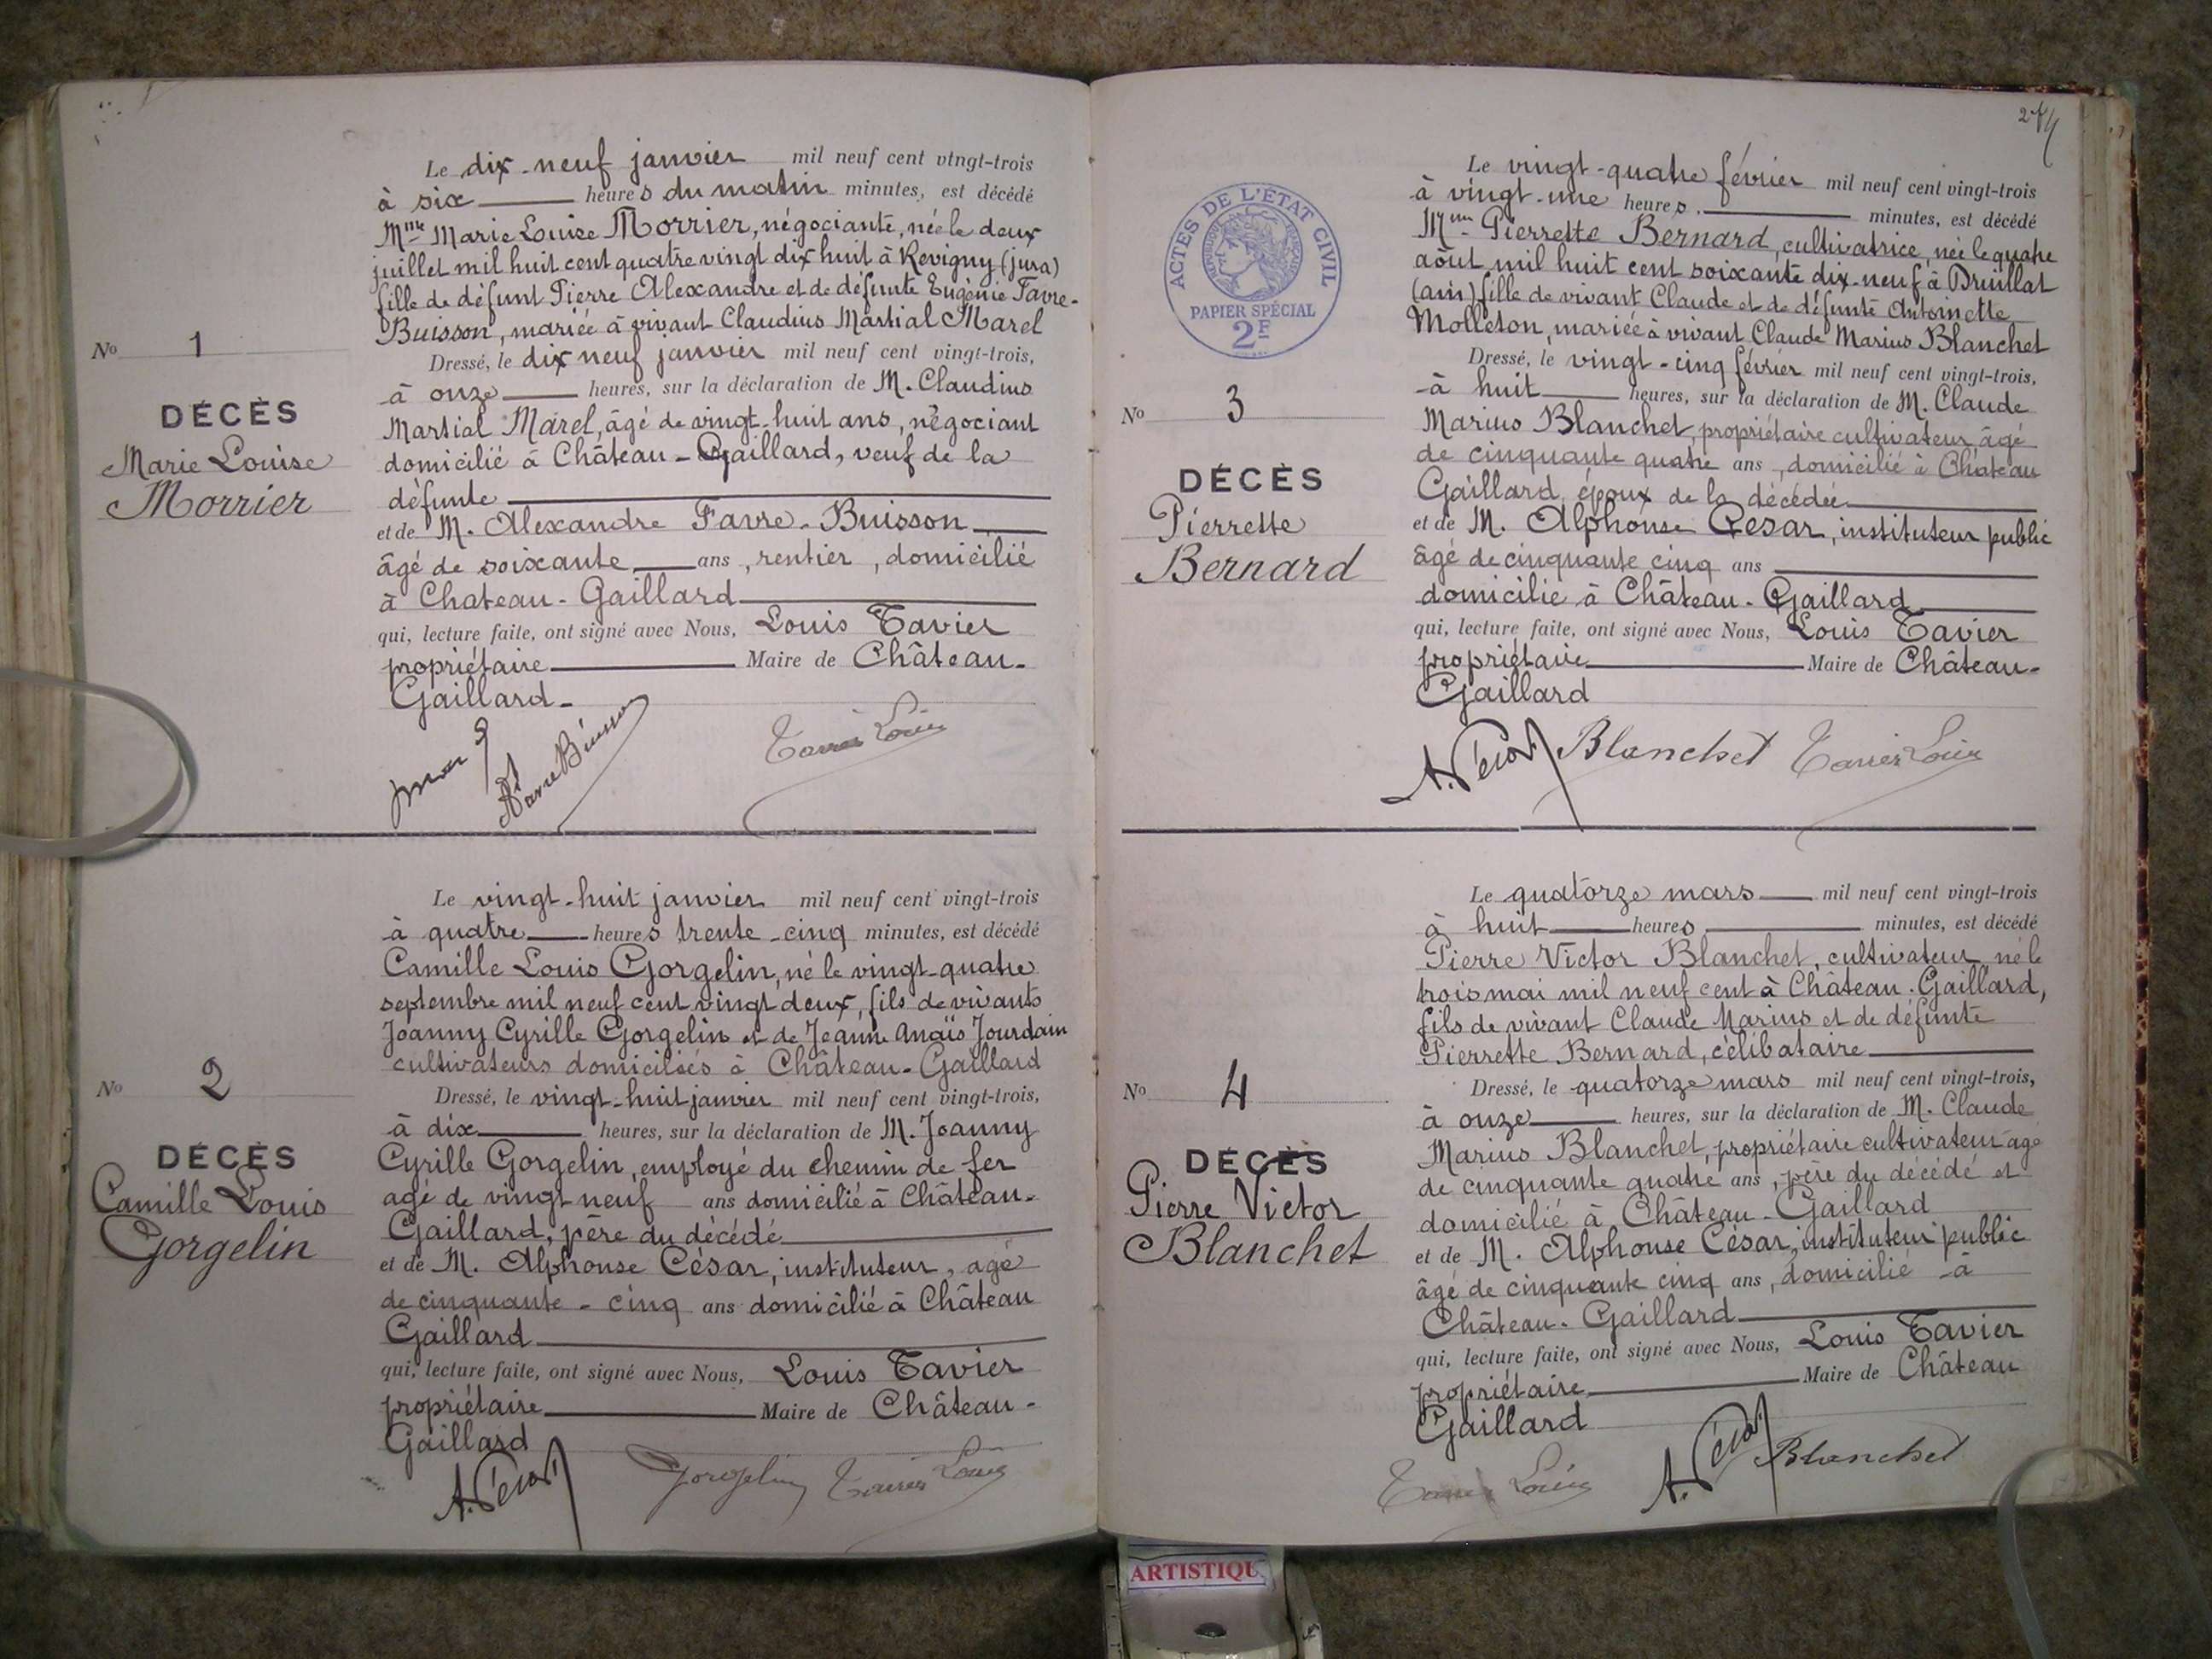 Le dix-neuf janvier mil neuf cent vingt-trois
à six heures du matin minutes, est décédé
Mme Marie Louise Morrier, négociante, née le deux
juillet mil huit cent quatre vingt dix huit à Revigny (jura)
fille de défunt Pierre Alexandre et de défunte Eugénie Favre-
Buisson, mariée à vivant Claudius Martial Marel
No 1
DÉCÈS
Marie Louise
Morrier
Dressé, le dix neuf janvier mil neuf cent vingt-trois,
à onze heures, sur la déclaration de M. Claudius
Martial Marel, âgé de vingt-huit ans, négociant
domicilié à Château-Gaillard, veuf de la
défunte
et de M. Alexandre Favre-Buisson
âgé de soixante ans, rentier, domicilié
à Chateau-Gaillard
qui, lecture faite, ont signé avec Nous, Louis Tavier
propriétaire Maire de Château-
Gaillard-
Tavier Louis
Le vingt-huit janvier mil neuf cent vingt-trois
à quatre heures trente-cinq minutes, est décédé
Camille Louis Gorgelin, né le vingt-quatre
septembre mil neuf cent vingt deux, fils de vivants
Joanny Cyrille Gorgelin et de Jeanne Anaïs Jourdain
cultivateurs domiciliés à Château-Gaillard
No 2
DÉCÈS
Camille Louis
Gorgelin
Dressé, le vingt-huit janvier mil neuf cent vingt-trois,
à dix heures, sur la déclaration de M. Joanny
Cyrille Gorgelin, employé du chemin de fer
agé de vingt neuf ans domicilié à Château-
Gaillard, père du décédé
et de M. Alphonse César, instituteur, agé
de cinquante-cinq ans domicilié à Château
Gaillard
qui, lecture faite, ont signé avec Nous, Louis Tavier
propriétaire Maire de Château-
Gaillard
A. César Gorgelin Tavier Louis
Le vingt-quatre février mil neuf cent vingt-trois
à vingt-une heures minutes, est décédé
Mme Pierrette Bernard, cultivatrice, née le quatre
août mil huit cent soixante dix-neuf à Druillat
(ain) fille de vivant Claude et de défunte Antoinette
Molleton, mariée à vivant Claude Marius Blanchet
ACTES DE L'ÉTAT CIVIL
RÉPUBLIQUE FRANÇAISE
PAPIER SPÉCIAL
2F
No 3
DÉCÈS
Pierrette
Bernard
Dressé, le vingt-cinq février mil neuf cent vingt-trois,
à huit heures, sur la déclaration de M. Claude
Marius Blanchet, propriétaire cultivateur âgé
de cinquante quatre ans, domicilié à Château
Gaillard, époux de la décédée
et de M. Alphonse Cesar, instituteur public
âgé de cinquante cinq ans
domicilié à Château-Gaillard
qui, lecture faite, ont signé avec Nous, Louis Tavier
propriétaire Maire de Château-
Gaillard
A. César Blanchet Tavier Louis
Le quatorze mars mil neuf cent vingt-trois
à huit heures minutes, est décédé
Pierre Victor Blanchet, cultivateur né le
trois mai mil neuf cent à Château-Gaillard,
fils de vivant Claude Marius et de défunte
Pierrette Bernard, célibataire
No 4
DÉCÈS
Pierre Victor
Blanchet
Dressé, le quatorze mars mil neuf cent vingt-trois,
à onze heures, sur la déclaration de M. Claude
Marius Blanchet, propriétaire cultivateur agé
de cinquante quatre ans, père du décédé et
domicilié à Château-Gaillard
et de M. Alphonse César, instituteur public
âgé de cinquante cinq ans, domicilié à
Château-Gaillard
qui, lecture faite, ont signé avec Nous, Louis Tavier
propriétaire Maire de Château
Gaillard
Tavier Louis A. César Blanchet
ARTISTIQU